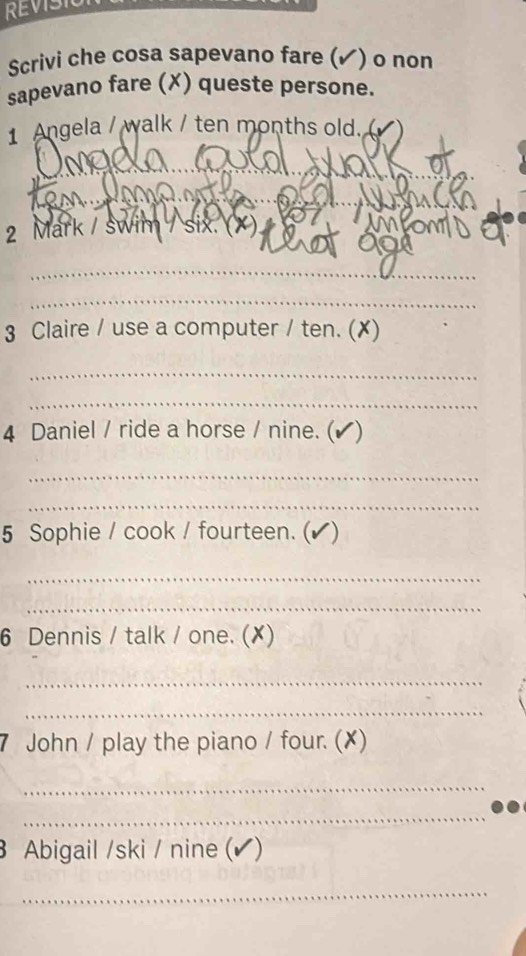 REVISIO
Scrivi che cosa sapevano fare (✓) o non
sapevano fare (✗) queste persone.
1 Angela / walk / ten months old. (✓)
Angela could walk at
ten months old, which
2 Mark / swim / six. (✗)
that age
3 Claire / use a computer / ten. (✗)
4 Daniel / ride a horse / nine. (✓)
5 Sophie / cook / fourteen. (✓)
6 Dennis / talk / one. (✗)
7 John / play the piano / four. (✗)
8 Abigail /ski / nine (✓)